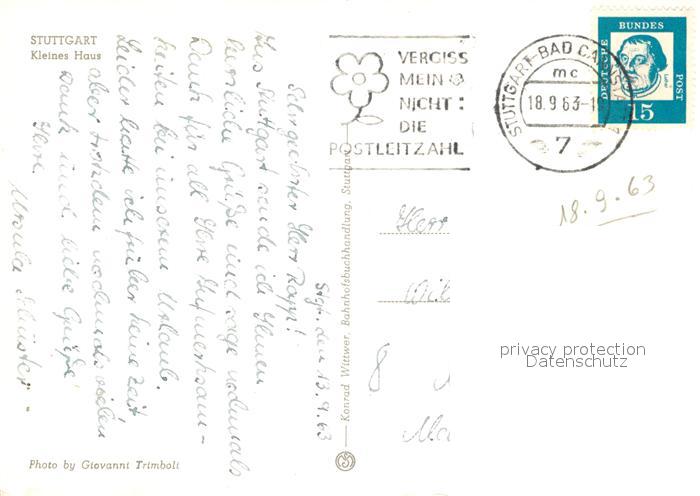 STUTTGART
Kleines Haus
Stgt. den 13.9.63
Sehr geehrter Herr Rapp!
Aus Stuttgart sende ich Ihnen
herzliche Grüße und sage nochmals
Dank für all Ihre Aufmerksam-
keiten bei unserem Urlaub.
Leider hatte ich früher keine Zeit
aber trotzdem nochmals vielen
Dank und liebe Grüße
Ihre
Ursula
Photo by Giovanni Trimboli
Konrad Wittwer, Bahnhofsbuchhandlung, Stuttgart
VERGISS
MEIN
NICHT:
DIE
POSTLEITZAHL
STUTTGART-BAD CANNSTATT
mc
18.9.63-1
7
DEUTSCHE
BUNDES
POST
15
18.9.63
Herr
8
privacy protection
Datenschutz